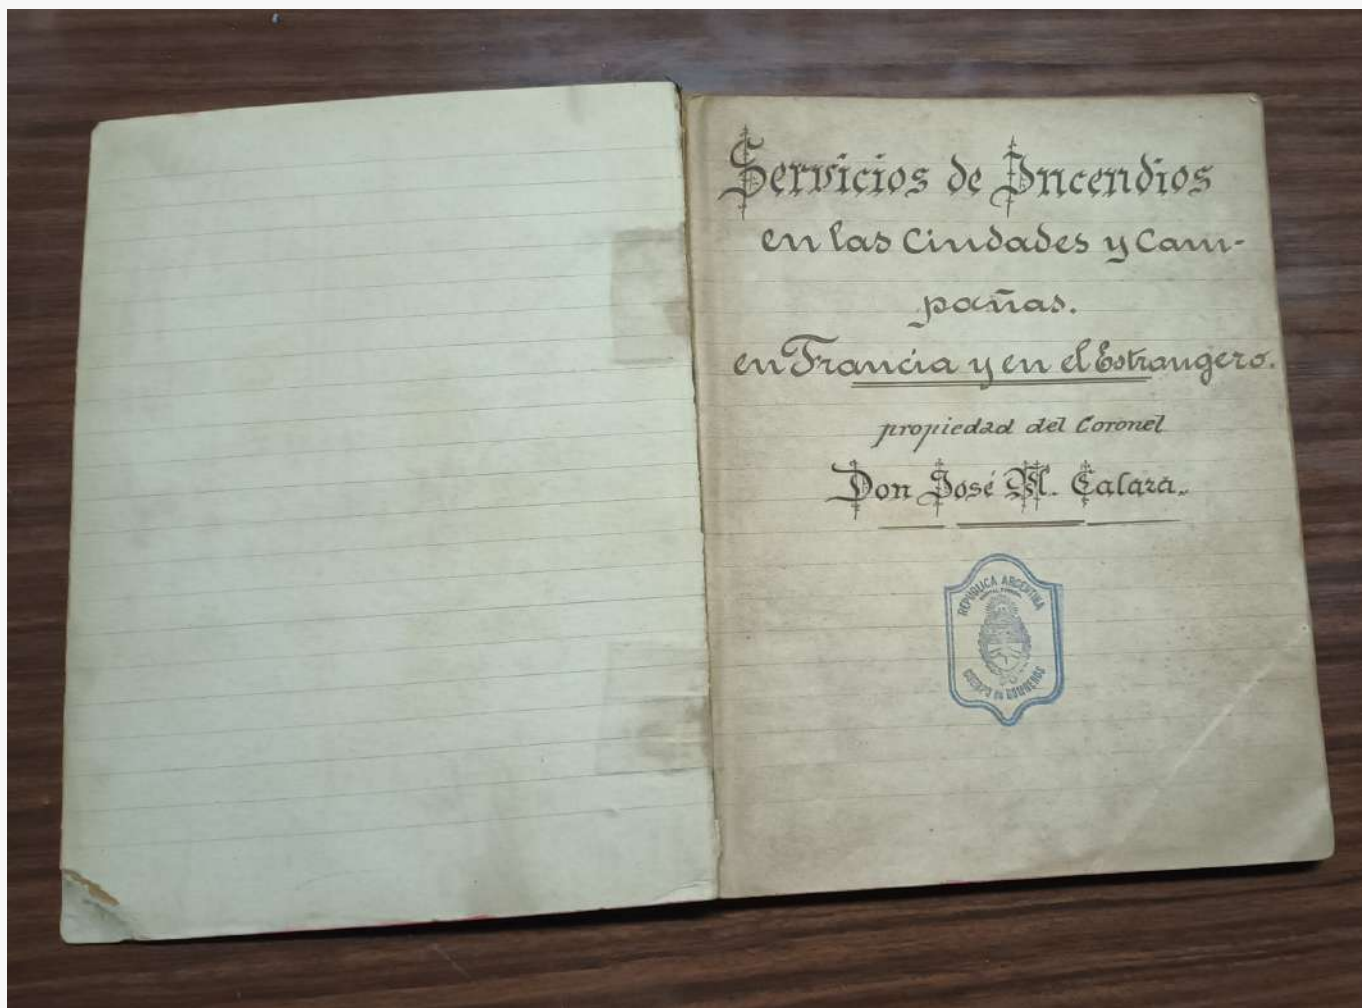 Servicios de Incendios
en las Ciudades y Cam-
pañas.
en Francia y en el Estrangero.
propiedad del Coronel
Don José M. Calaza.
REPÚBLICA ARGENTINA
CUERPO DE BOMBEROS